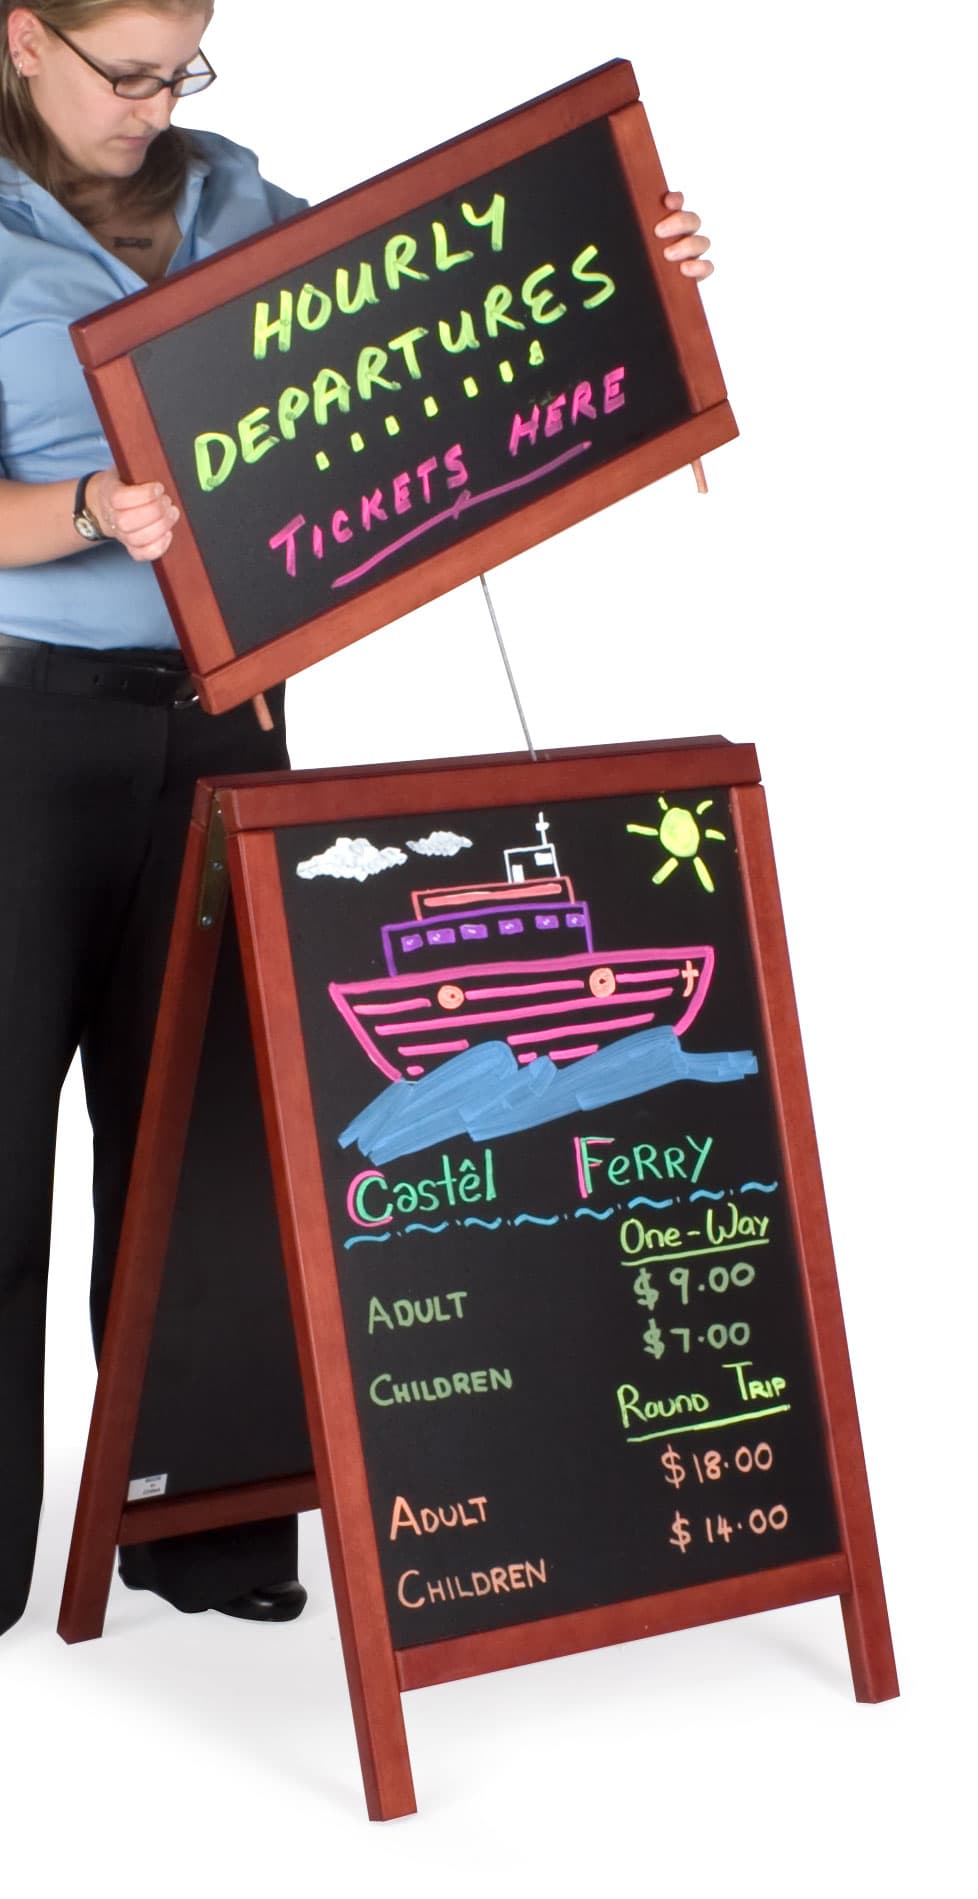 HOURLY
DEPARTURES
.......
TICKETS HERE
Castêl FeRRY
One-Way
ADULT $9.00
CHILDREN $7.00
ROUND TRIP
ADULT $18.00
CHILDREN $14.00